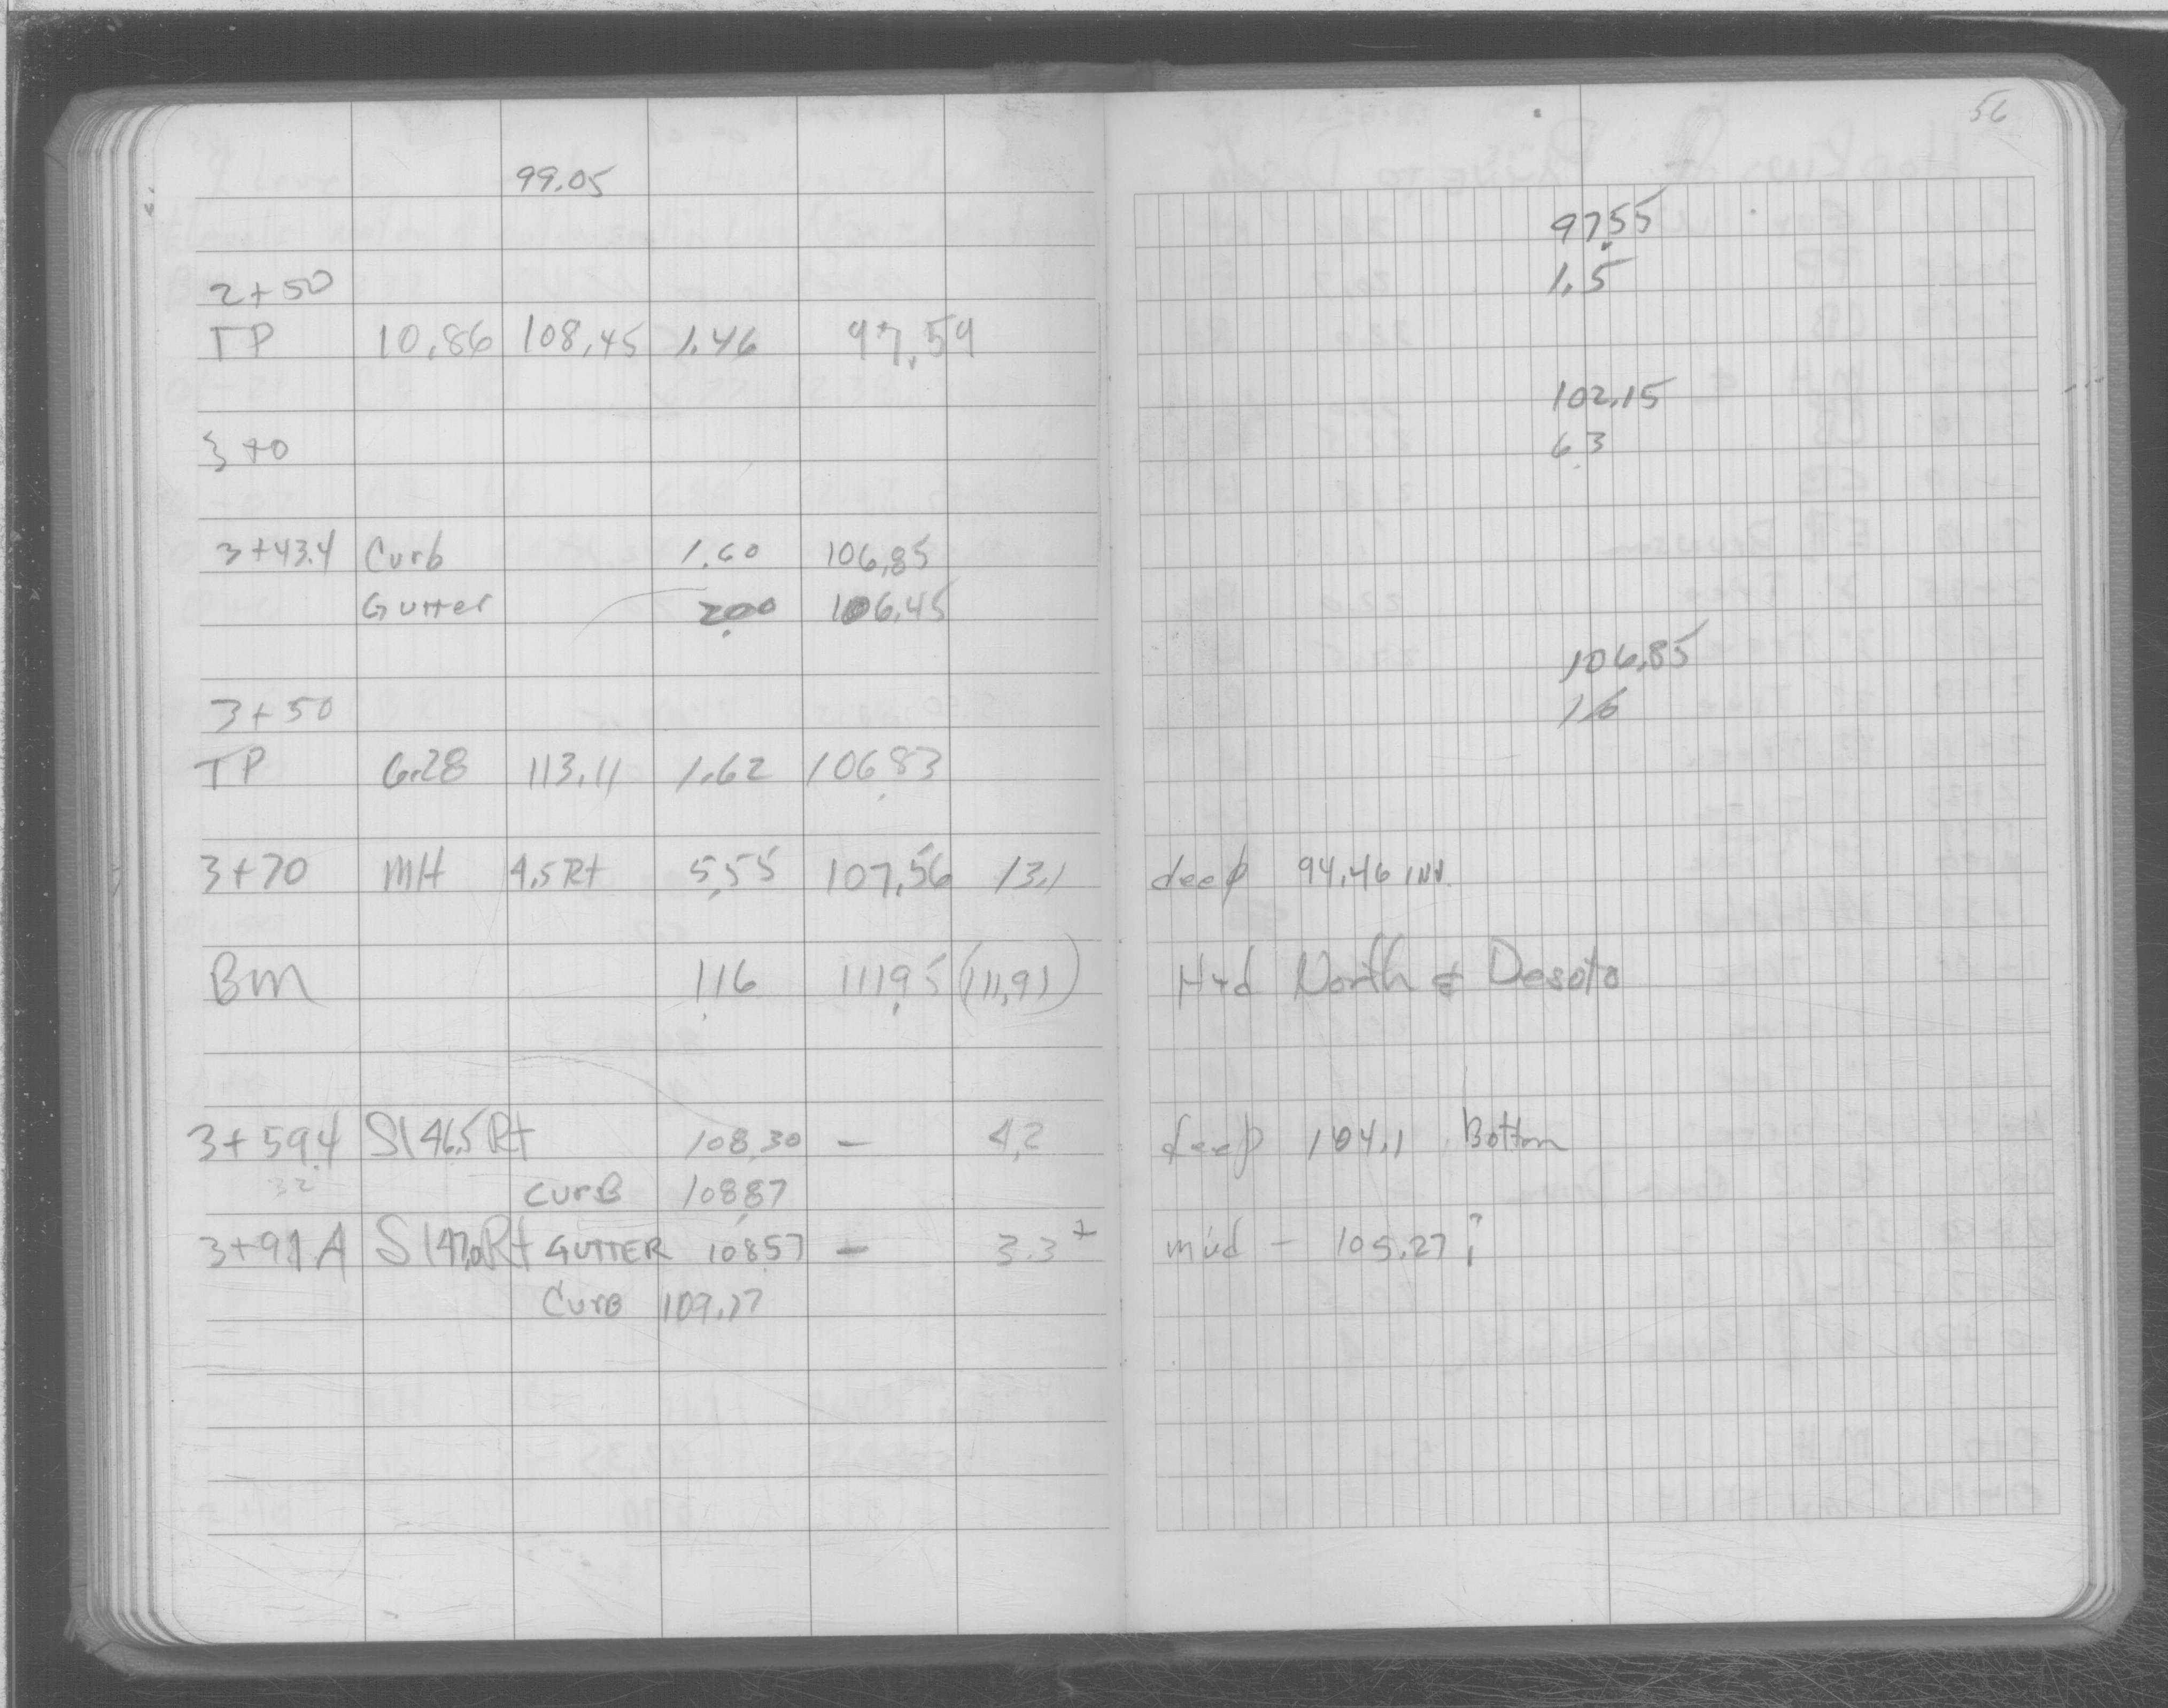 56
99.05
97.55
2+50 1.5
TP 10.86 108.45 1.46 97.59
102.15
3+0 6.3
3+43.4 Curb 1.60 106.85
Gutter 2.00 106.45
106.85
3+50 1.6
TP 6.28 113.11 1.62 106.83
3+70 MH 4.5 Rt 5.55 107.56 13.1 deep 94.46 INV.
BM 1.16 111.95 (111.91) Hyd North & Desoto
3+59.4 SI 46.5 Rt 108.30 — 4.2 deep 104.1 Bottom
32 CURB 108.87
3+91 A SI 47.0 Rt GUTTER 108.57 — 3.3+ mud - 105.27 ?
CURB 109.17